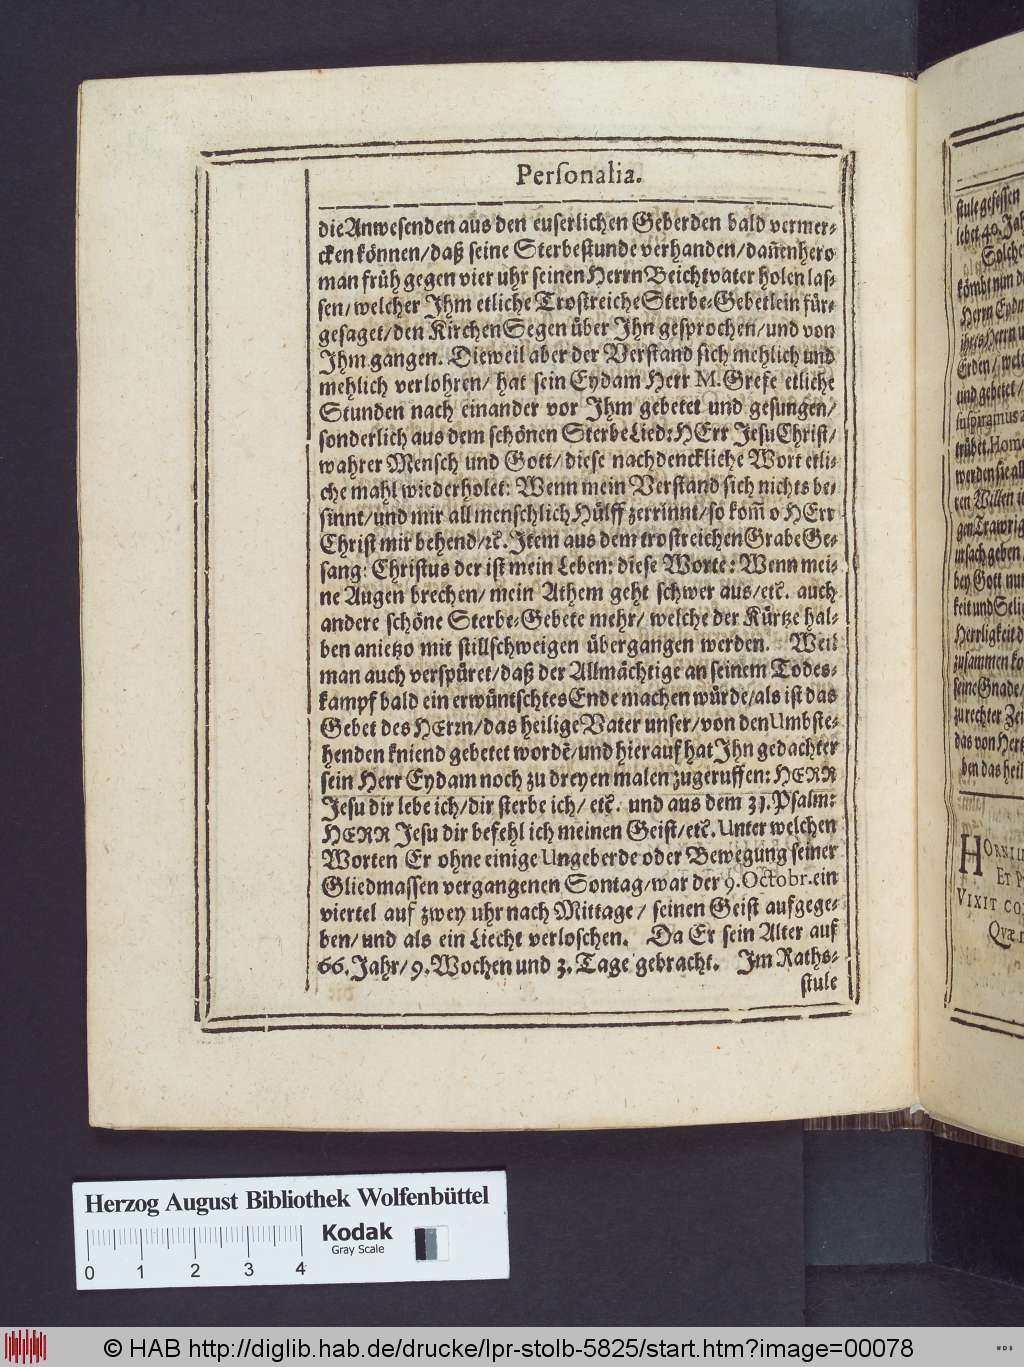 Perſonalia.
die Anwesenden aus den euserlichen Geberden bald vermer-
cken können/daß seine Sterbestunde verhanden/dañenhero
man früh gegen vier uhr seinen Herrn Beichtvater holen las-
sen/welcher Ihm etliche Trostreiche Sterbe-Gebetlein für-
gesaget/den KirchenSegen über Ihn gesprochen/und von
Ihm gangen. Dieweil aber der Verstand sich mehlich und
mehlich verlohren/ hat sein Eydam Herr M. Grefe etliche
Stunden nach einander vor Ihm gebetet und gesungen/
sonderlich aus dem schönen SterbeLied: HErr JesuChrist/
wahrer Mensch und Gott/diese nachdenckliche Wort etli-
che mahl wiederholet: Wenn mein Verstand sich nichts be-
sinnt/und mir all menschlich Hülff zerrinnt/so kom̃ o HErr
Christ mir behend/ꝛc. Item aus dem trostreichen GrabeGe-
sang: Christus der ist mein Leben: diese Worte: Wenn mei-
ne Augen brechen/mein Athem geht schwer aus/etc. auch
andere schöne Sterbe-Gebete mehr/ welche der Kürtze hal-
ben anietzo mit stillschweigen übergangen werden. Weil
man auch verspüret/daß der Allmächtige an seinem Todes-
kampf bald ein erwüntschtes Ende machen würde/als ist das
Gebet des HErrn/das heilige Vater unser/von den Umbste-
henden kniend gebetet wordẽ/und hierauf hat Ihn gedachter
sein Herr Eydam noch zu dreyen malen zugeruffen: HERR
Jesu dir lebe ich/dir sterbe ich/ etc. und aus dem 31. Psalm:
HERR Jesu dir befehl ich meinen Geist/etc. Unter welchen
Worten Er ohne einige Ungeberde oder Bewegung seiner
Gliedmassen vergangenen Sontag/war der 9. Octobr. ein
viertel auf zwey uhr nach Mittage/ seinen Geist aufgege-
ben/und als ein Liecht verloschen. Da Er sein Alter auf
66. Jahr/ 9. Wochen und 3. Tage gebracht. Im Raths-
stule
stule gesessen
lebet 40. Jah
Solche
kömbt nun d
Herrn Eydm
ihres Herrn u
Erden/ welc
und gebetet/
suspiramus a
trübet. Home
werden sie al
ren Willen i
gen Trawrig
ursach geben
bey Gott nu
keit und Seli
Herrligkeit d
zusammen ko
seine Gnade/
zu rechter Zei
das von Hert
ben das heil
HORNII
ET P
VIXIT CO
QVÆ
Herzog August Bibliothek Wolfenbüttel
Kodak
Gray Scale
0 1 2 3 4
© HAB http://diglib.hab.de/drucke/lpr-stolb-5825/start.htm?image=00078